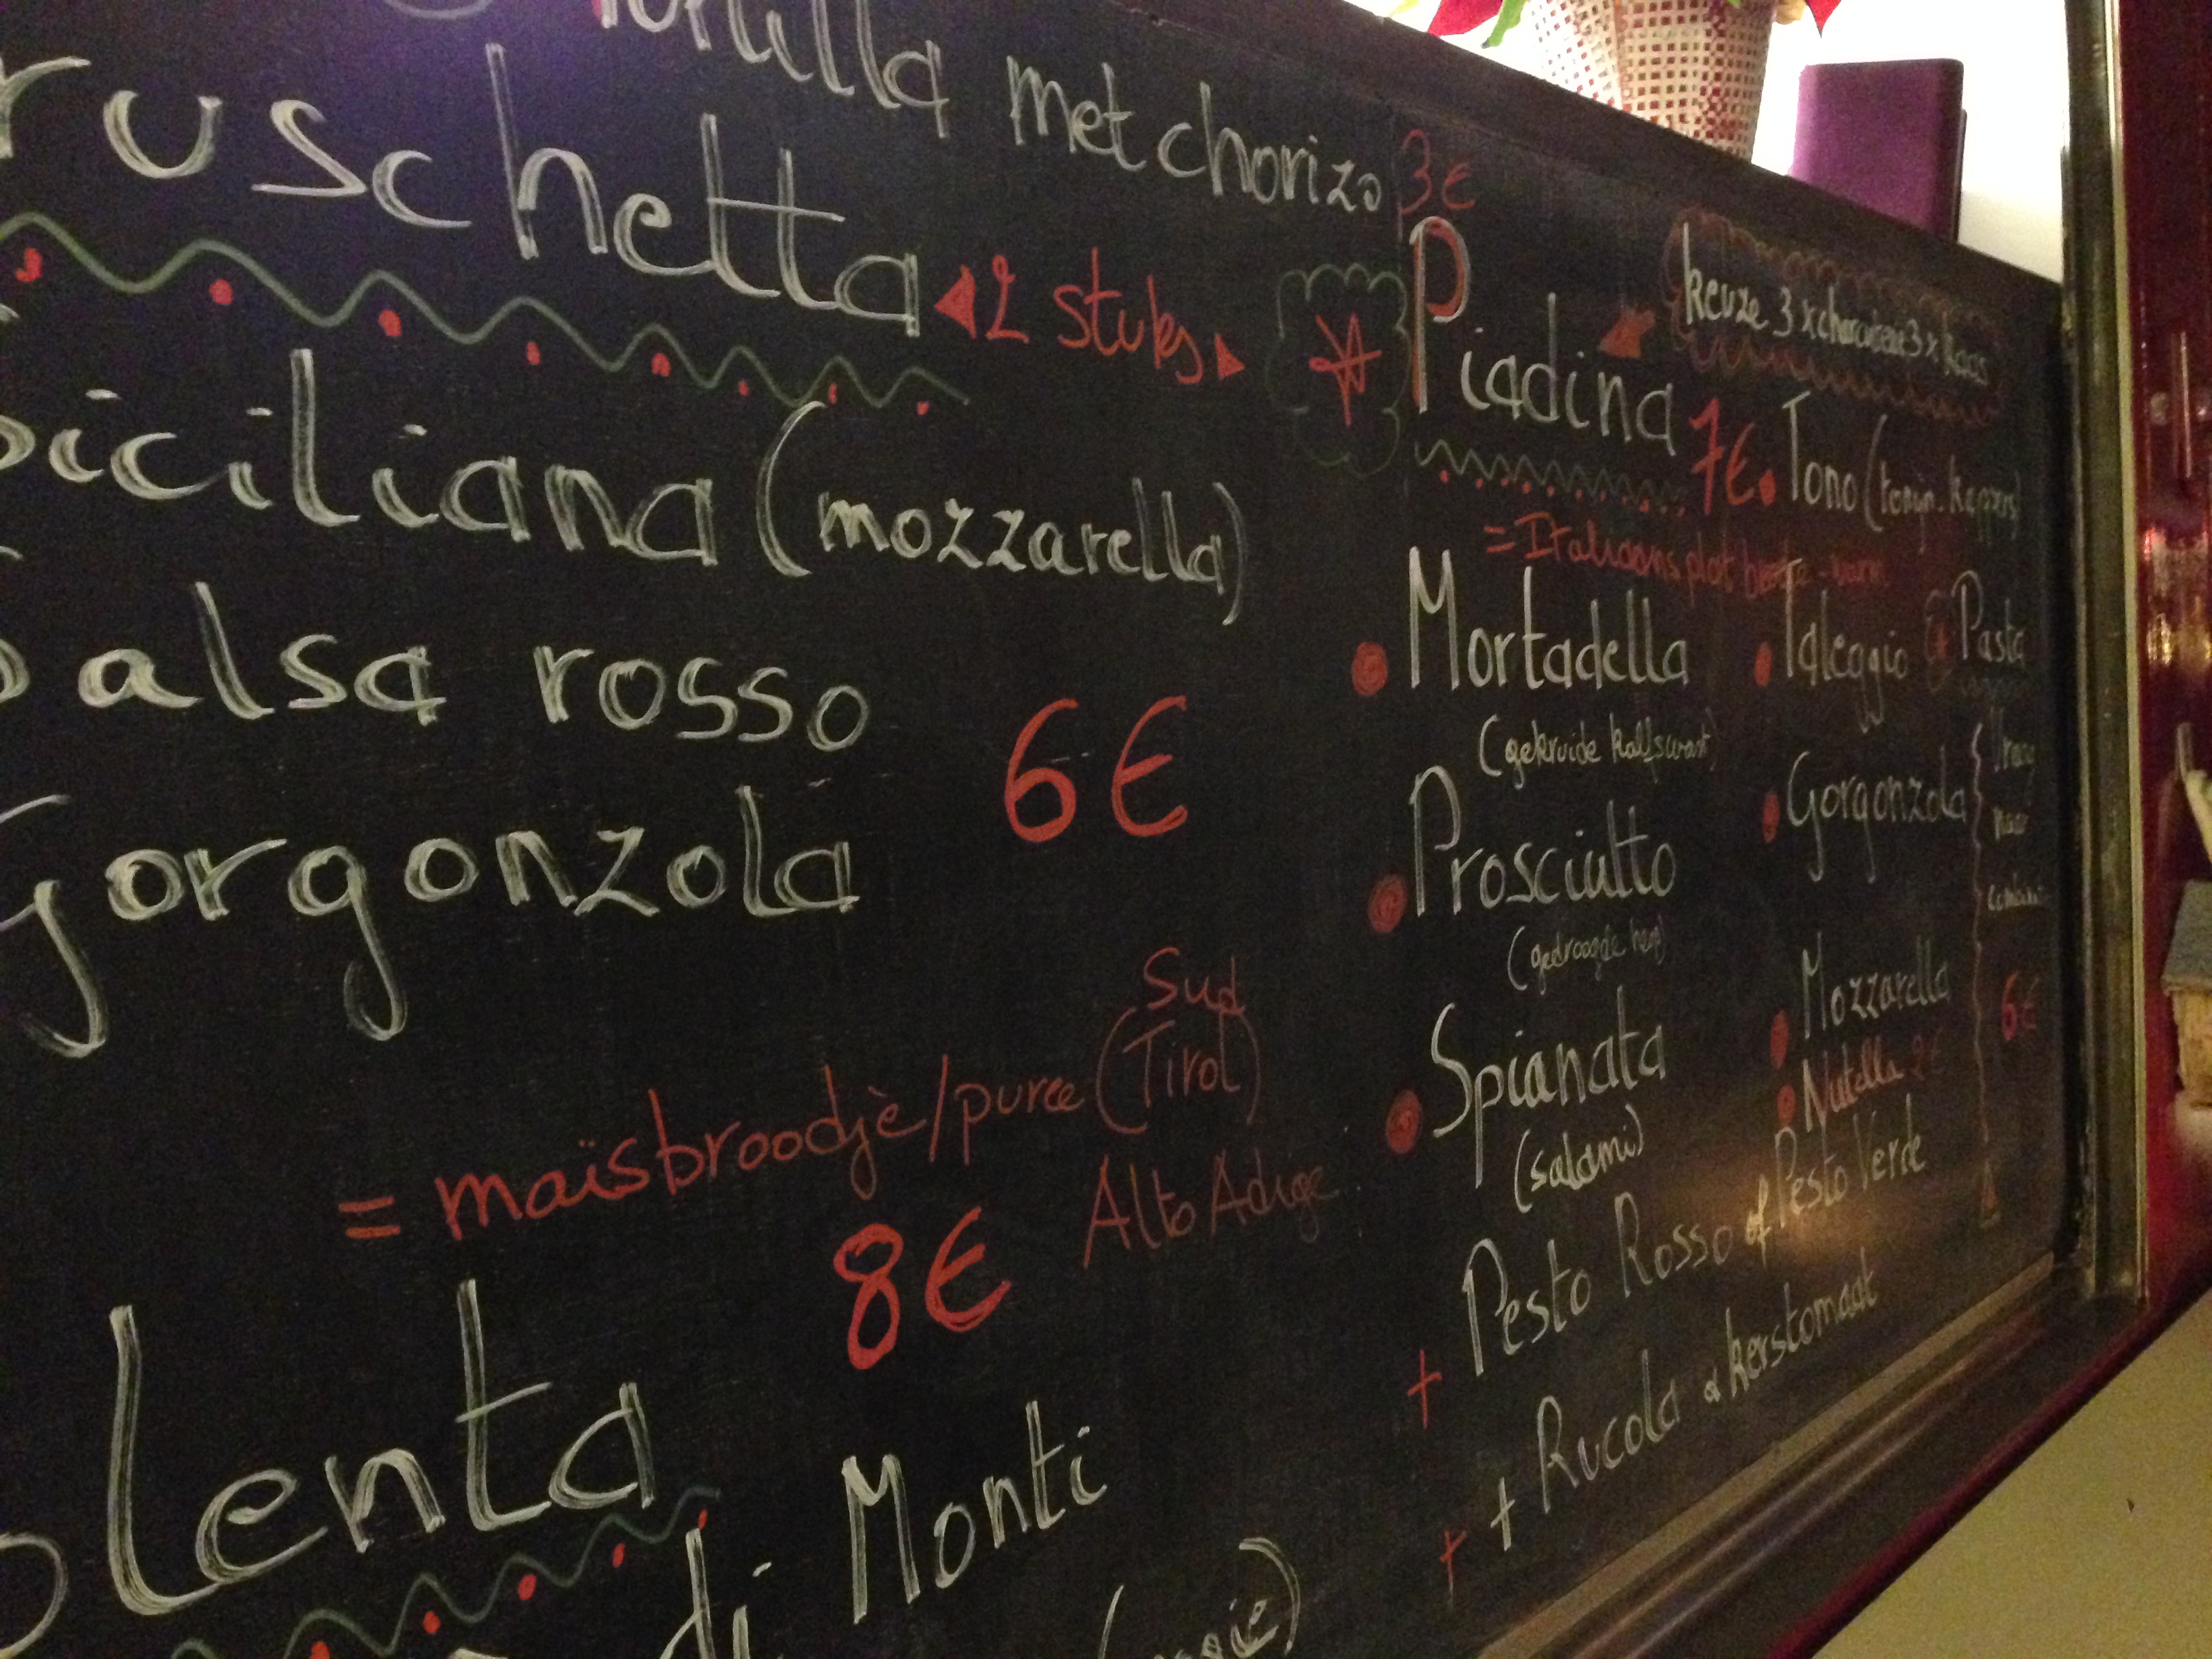 met chorizo 3€
ruschetta
2 stuks
iciliana (mozzarella)
alsa rosso
6€
Gorgonzola
= maïsbroodjè/puree (Sud Tirol)
Alto Adige
8€
lenta
di Monti
Piadina
7€
keuze 3 x charcuterie 3 x kaas
= Italiaans plat broodje - warm
Mortadella
(gekruide kalfsworst)
Prosciutto
(gedroogde ham)
Spianata
(salami)
Tono (tonijn - kappers)
Taleggio
Gorgonzola
Mozzarella
Nutella 2€
+ Pesto Rosso of Pesto Verde
+ + Rucola & kerstomaat
Pasta
Vraag
naar
6€